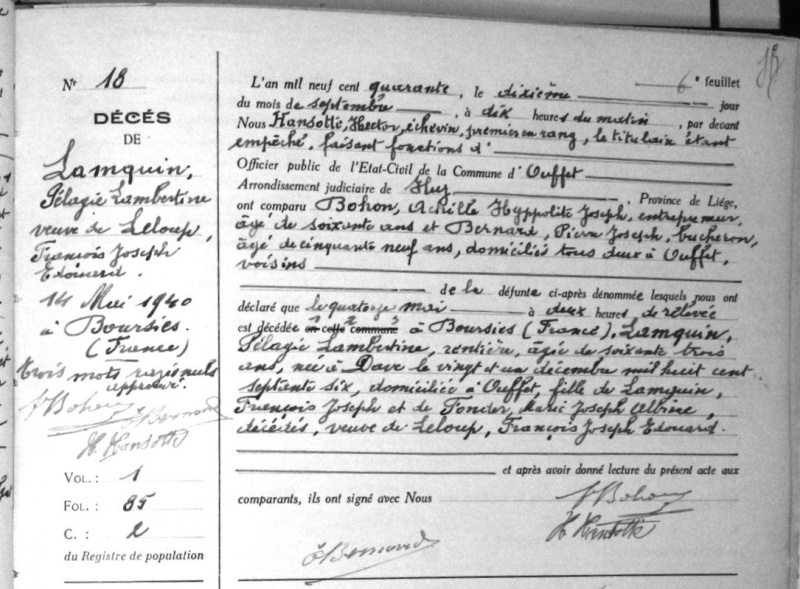 Nr 18
DÉCÉS
DE
Lamquin,
Pélagie Lambertine
veuve de Leloup,
François Joseph
Edouard.
14 Mai 1940
à Boursies.
(France)
trois mots rayés nuls
approuvé.
Bohon
Bernard
H. Hansotte
VOL.: 1
FOL.: 85
C.: 2
du Registre de population
6e feuillet
L'an mil neuf cent quarante, le dixième jour
du mois de septembre, à dix heures du matin, par devant
Nous Hansotte, Hector, échevin, premier en rang, le titulaire étant
empêché, faisant fonctions d'
Officier public de l'Etat-Civil de la Commune d'Ouffet
Arrondissement judiciaire de Huy, Province de Liége,
ont comparu Bohon, Achille Hyppolite Joseph, entrepreneur,
âgé de soixante ans et Bernard, Pierre Joseph, bucheron,
âgé de cinquante neuf ans, domiciliés tous deux à Ouffet,
voisins
de la défunte ci-après dénommée lesquels nous ont
déclaré que le quatorze mai à deux heures de relevée
est décédée en cette commune à Boursies (France), Lamquin,
Pélagie Lambertine, rentière, âgée de soixante trois
ans, née à Dave le vingt et un décembre mil huit cent
septante six, domiciliée à Ouffet, fille de Lamquin,
François Joseph et de Tonder, Marie Joseph Albine,
décédés, veuve de Leloup, François Joseph Edouard.
et après avoir donné lecture du présent acte aux
comparants, ils ont signé avec Nous
Bohon
H. Hansotte
Bernard